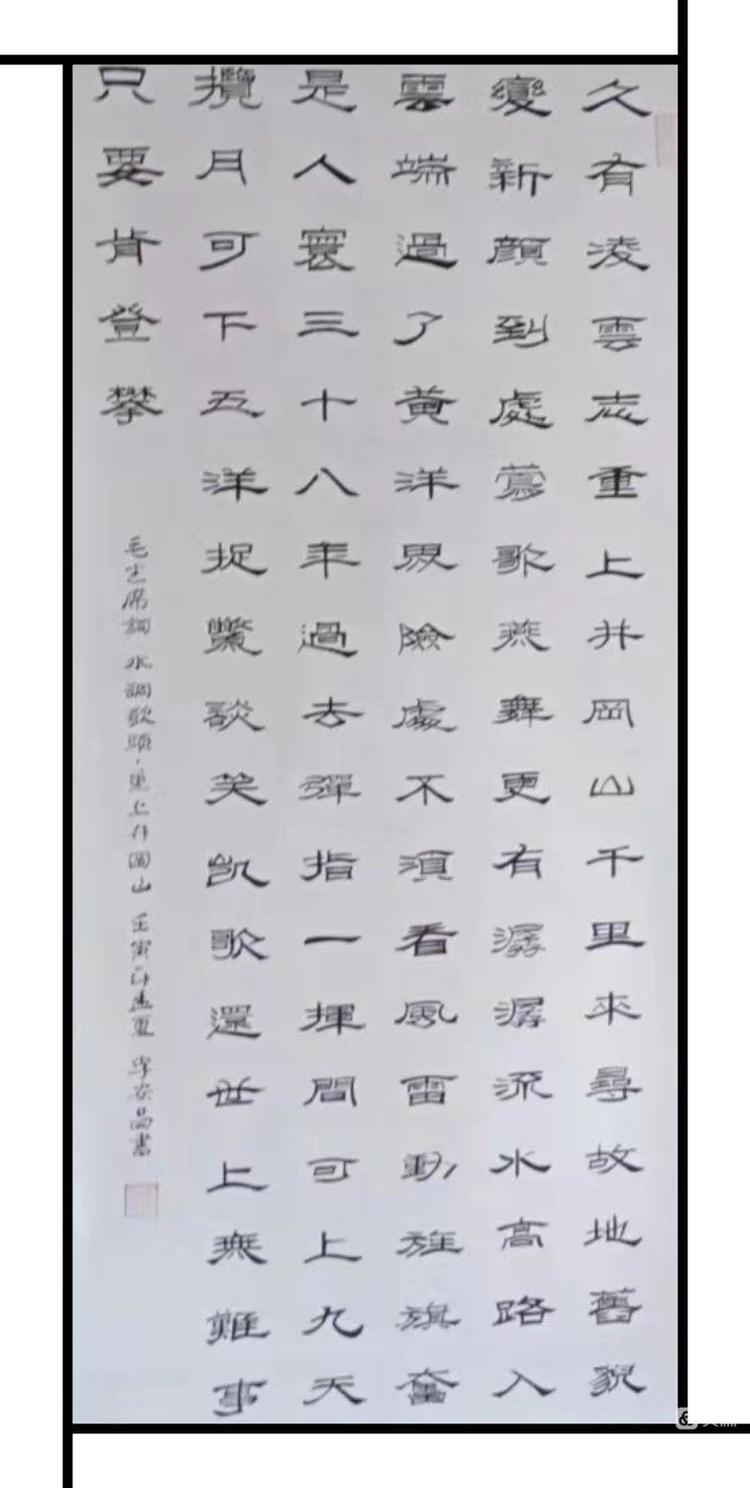 久有凌雲志重上井岡山千里來尋故地舊貌
變新顔到處鶯歌燕舞更有潺潺流水高路入
雲端過了黄洋界險處不須看風雷動旌旗奮
是人寰三十八年過去彈指一揮間可上九天
攬月可下五洋捉鱉談笑凱歌還世上無難事
只要肯登攀
毛主席詞 水調歌頭·重上井岡山 壬寅年孟夏 李昌書